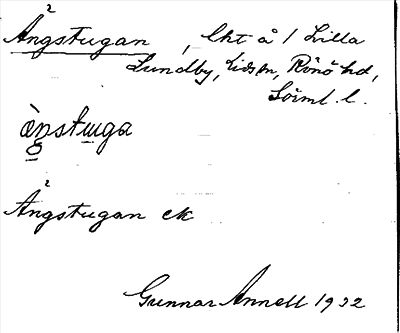 Ångstugan, lht å 1 Lilla
Lundby, Lids sn, Rönö hd,
Södml. l.
ængstuga
Ångstugan ek
Gunnar Annell 1932